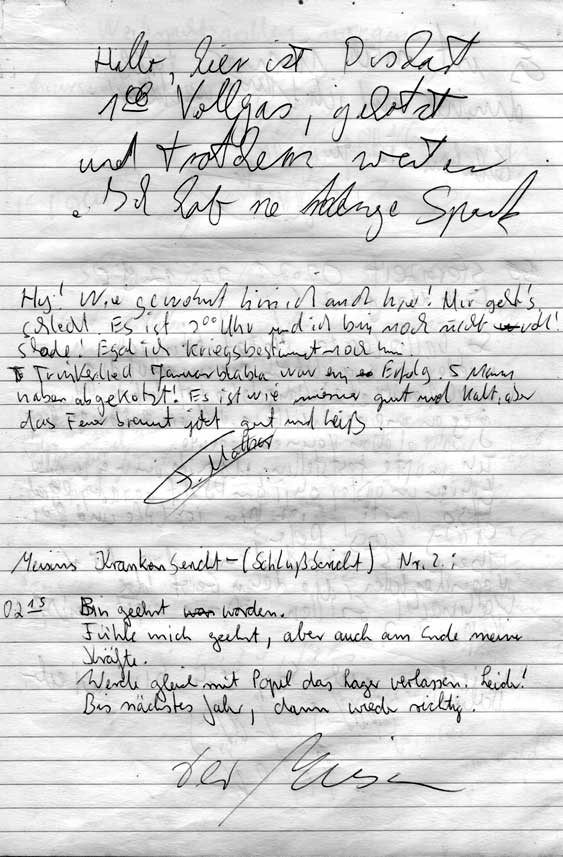 Hallo, hier ist
1⁰⁰ Vollgas, gekotzt
und trotzdem weiter
Ich hab ne Menge Spaß
Hey! Wie gewohnt bin ich auch hier! Mir geht's
schlecht. Es ist 2⁰⁰ Uhr und ich bin noch nicht voll!
Schade! Egal ich krieg bestimmt noch hin
Trinkerlied war ein Erfolg. 5 Mann
haben abgekotzt! Es ist wie immer gut und kalt, aber
das Feuer brennt jetzt gut und heiß.
Krankenbericht - (Schlußbericht) Nr. 2:
02¹⁵ Bin geehrt worden.
Fühle mich geehrt, aber auch am Ende meiner
Kräfte.
Werde gleich mit Popel das Lager verlassen. Leider!
Bis nächstes Jahr, dann wieder richtig.
der